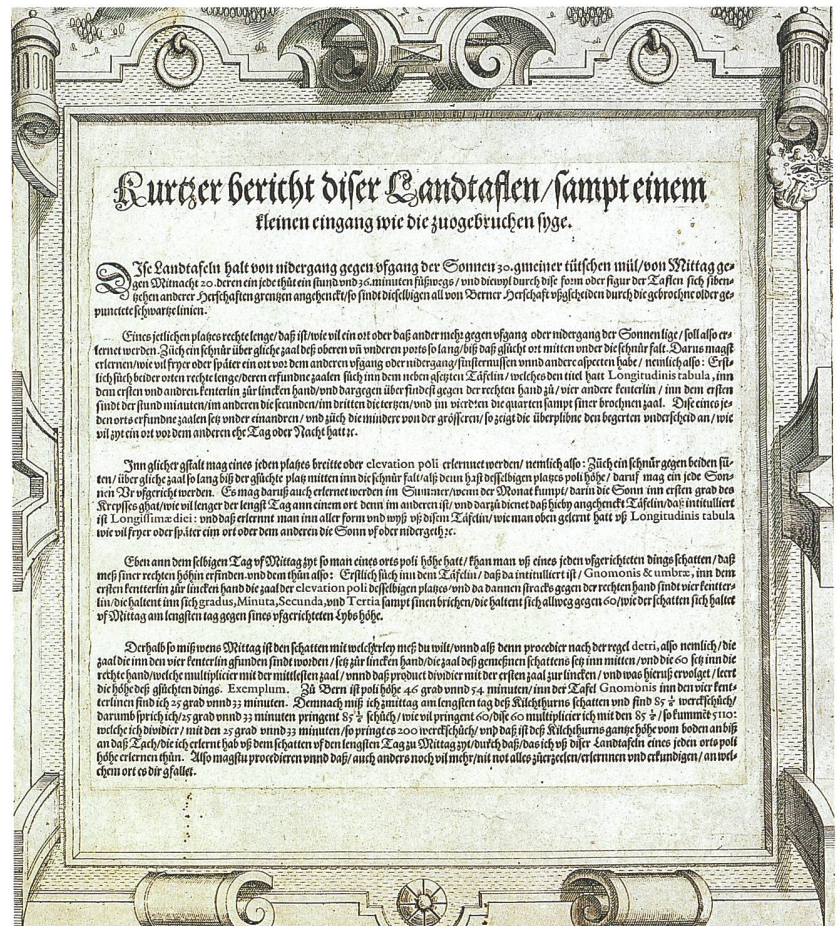 Kurtzer bericht diser Landtaflen/sampt einem
kleinen eingang wie die zuogebruchen syge.
DIse Landtafeln halt von nidergang gegen vfgang der Sonnen 30. gmeiner tütschen mül/von Mittag ge-
gen Mitnacht 20. deren ein jede thüt ein stund vnd 36. minuten füßwegs/vnd diewyl durch dise form oder figur der Taflen sich siben-
tzehen anderer Herschaften grentzen angehenckt/so sindt dieselbigen all von Berner Herschaft vßgscheiden durch die gebrochne older ge-
punctete schwartze linien.
Eines jetlichen platzes rechte lenge/daß ist/wie vil ein ort oder daß ander mehr gegen vfgang oder nidergang der Sonnen lige/soll also er-
lernet werden. Züch ein schnür über gliche zaal deß oberen vñ vnderen ports so lang/biß daß gsücht ort mitten vnder die schnür falt. Darus magst
erlernen/wie vil fryer oder später ein ort vor dem anderen vfgang oder nidergang/finsternussen vnnd andere aspecten habe/nemlich also: Erst-
lich süch beider orten rechte lenge/deren erfundne zaalen süch inn dem neben gsetzten Täfelin/welches den titel hatt Longitudinis tabula, inn
dem ersten vnd andren kenterlin zür lincken hand/vnd dargegen über findest gegen der rechten hand zů/vier andere kenterlin/inn dem ersten
sindt der stund minuten/im anderen die secunden/im dritten die tertzen/vnd im vierdten die quarten sampt siner brochnen zaal. Dise eines je-
den orts erfundne zaalen setz vnder einandren/vnd züch die mindere von der grösseren/so zeigt die überplibne den begerten vnderscheid an/wie
vil zyt ein ort vor dem anderen ehe Tag oder Nacht hatt ꝛc.
Inn glicher gstalt mag eines jeden platzes breitte oder elevation poli erlernnet werden/nemlich also: Züch ein schnür gegen beiden sü-
ten/über gliche zaal so lang biß der gsüchte platz mitten inn die schnür falt/alß denn hast desselbigen platzes poli höhe/daruf mag ein jede Son-
nen Vr vfgericht werden. Es mag daruß auch erlernet werden im Summer/wenn der Monat kumpt/darin die Sonn inn ersten grad des
Krepsses ghat/wie vil lenger der lengst Tag ann einem ort denn im anderen ist/vnd darzů dienet daß hieby angehenckt Täfelin/daß intitulliert
ist Longissimæ diei: vnd daß erlernnt man inn aller form vnd wyß vß disem Täfelin/wie man oben gelernt hatt vß Longitudinis tabula
wie vil fryer oder später eim ort oder dem anderen die Sonn vf oder nidergeth ꝛc.
Eben ann dem selbigen Tag vf Mittag zyt so man eines orts poli höhe hatt/khan man vß eines jeden vfgerichteten dings schatten/daß
meß siner rechten höhin erfinden. vnd dem thůn also: Erstlich süch inn dem Täfelin/daß da intitulliert ist/Gnomonis & umbræ, inn dem
ersten kentterlin zür lincken hand die zaal der elevation poli desselbigen platzes/vnd da dannen stracks gegen der rechten hand sindt vier kentter-
lin/die haltent inn sich gradus, Minuta, Secunda, vnd Tertia sampt sinen brüchen/die haltent sich allweg gegen 60/wie der schatten sich haltet
vf Mittag am lengsten tag gegen sines vfgerichteten Lybs höhe.
Derhalb so miß wens Mittag ist den schatten mit welcherley meß du wilt/vnnd alß denn procedier nach der regel detri, also nemlich/die
zaal die inn den vier kenterlin gfunden sindt worden/setz zür lincken hand/die zaal deß gemeßnen schattens setz inn mitten/vnd die 60 setz inn die
rechte hand/welche multiplicier mit der mittlesten zaal/vnnd daß product dividier mit der ersten zaal zür lincken/vnd was hieruß ervolget/leert
die höhe deß gsüchten dings. Exemplum. Zů Bern ist poli höhe 46 grad vnnd 54 minuten/inn der Tafel Gnomonis inn den vier kent-
terlinen find ich 25 grad vnnd 33 minuten. Demnach miß ich zmittag am lengsten tag deß Kilchthurns schatten vnd find 85 ½ werckschüch/
darumb sprich ich/25 grad vnnd 33 minuten pringent 85 ½ schüch/wie vil pringent 60/dise 60 multiplicier ich mit den 85 ½/so kummēt 5110:
welche ich dividier/mit den 25 grad vnnd 33 minuten/so pringt es 200 werckschüch/vnd daß ist deß Kilchthurns gantze höhe vom boden an biß
an daß Tach/die ich erlernt hab vß dem schatten vf den lengsten Tag zu Mittag zyt/durch daß/das ich vß diser Landtafelen eines jeden orts poli
höhe erlernen thün. Also magstu procedieren vnnd daß/auch anders noch vil mehr/nit not alles züerzeelen/erlernnen vnd erkundigen/an wel-
chem ort es dir gfallet.